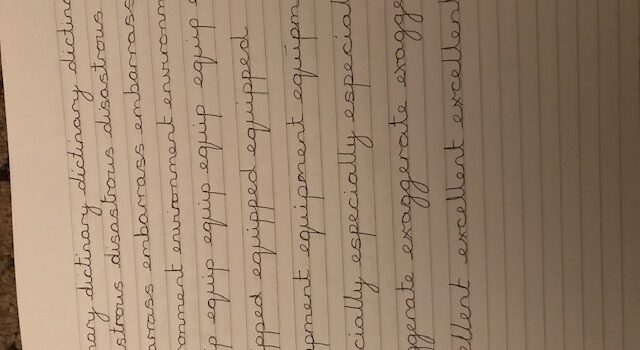 nary dictinary dictinary dictina
strous disastrous disastrous
arrass embarrass embarrass
onment environment environm
p equip equip equip equip e
pped equipped equipped
pment equipment equipm
cially especially especial
ggerate exaggerate exagge
ellent excellent excellent